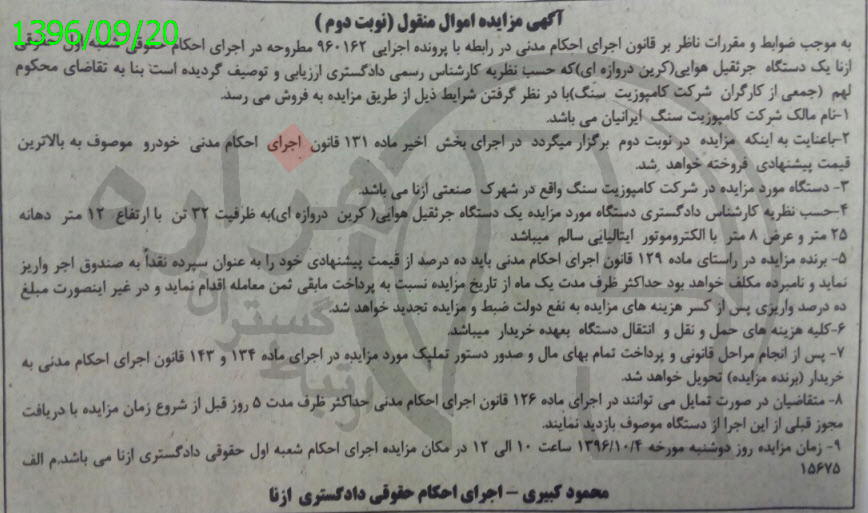 1396/09/20
آگهی مزایده اموال منقول (نوبت دوم)
به موجب ضوابط و مقررات ناظر بر قانون اجرای احکام مدنی در رابطه با پرونده اجرایی ۹۶۰۱۶۲ مطروحه در اجرای احکام حقوقی شعبه اول حقوقی
ازنا یک دستگاه جرثقیل هوایی(کرین دروازه ای)که حسب نظریه کارشناس رسمی دادگستری ارزیابی و توصیف گردیده است بنا به تقاضای محکوم
لهم (جمعی از کارگران شرکت کامپوزیت سنگ)با در نظر گرفتن شرایط ذیل از طریق مزایده به فروش می رسد.
۱-نام مالک شرکت کامپوزیت سنگ ایرانیان می باشد.
۲-باعنایت به اینکه مزایده در نوبت دوم برگزار میگردد در اجرای بخش اخیر ماده ۱۳۱ قانون اجرای احکام مدنی خودرو موصوف به بالاترین
قیمت پیشنهادی فروخته خواهد شد.
۳- دستگاه مورد مزایده در شرکت کامپوزیت سنگ واقع در شهرک صنعتی ازنا می باشد.
۴-حسب نظریه کارشناس دادگستری دستگاه مورد مزایده یک دستگاه جرثقیل هوایی( کرین دروازه ای)به ظرفیت ۳۲ تن با ارتفاع ۱۲ متر دهانه
۲۵ متر و عرض ۸ متر با الکتروموتور ایتالیایی سالم میباشد
۵- برنده مزایده در راستای ماده ۱۲۹ قانون اجرای احکام مدنی باید ده درصد از قیمت پیشنهادی خود را به عنوان سپرده نقداً به صندوق اجر واریز
نماید و نامبرده مکلف خواهد بود حداکثر ظرف مدت یک ماه از تاریخ مزایده نسبت به پرداخت مابقی ثمن معامله اقدام نماید و در غیر اینصورت مبلغ
ده درصد واریزی پس از کسر هزینه های مزایده به نفع دولت ضبط و مزایده تجدید خواهد شد.
۶-کلیه هزینه های حمل و نقل و انتقال دستگاه بعهده خریدار میباشد.
۷- پس از انجام مراحل قانونی و پرداخت تمام بهای مال و صدور دستور تملیک مورد مزایده در اجرای ماده ۱۳۴ و ۱۴۳ قانون اجرای احکام مدنی به
خریدار (برنده مزایده) تحویل خواهد شد.
۸- متقاضیان در صورت تمایل می توانند در اجرای ماده ۱۲۶ قانون اجرای احکام مدنی حداکثر ظرف مدت ۵ روز قبل از شروع زمان مزایده با دریافت
مجوز قبلی از این اجرا از دستگاه موصوف بازدید نمایند.
۹- زمان مزایده روز دوشنبه مورخه ۱۳۹۶/۱۰/۴ ساعت ۱۰ الی ۱۲ در مکان مزایده اجرای احکام شعبه اول حقوقی دادگستری ازنا می باشد.م الف
۱۵۶۷۵
محمود کبیری – اجرای احکام حقوقی دادگستری ازنا
هزاره
گستران
ارتباط